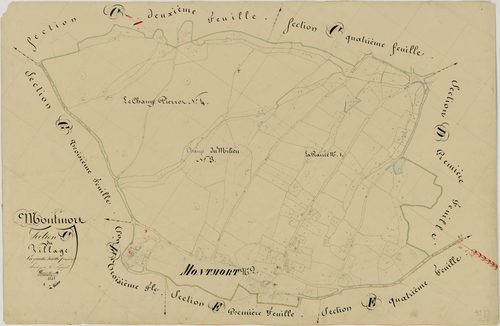 Section C deuxième Feuille
Section C quatrième feuille
Section D Première Feuille
Section G troisième Feuille
Le Champ Pierrot Nº 4.
Champ du Milieu
Nº 3.
La Prairie Nº 1.
Montmort
Section C
du
Village
MONTMORT Nº 2.
Troisième Fle
Section E Première Feuille
Section E quatrième Feuille